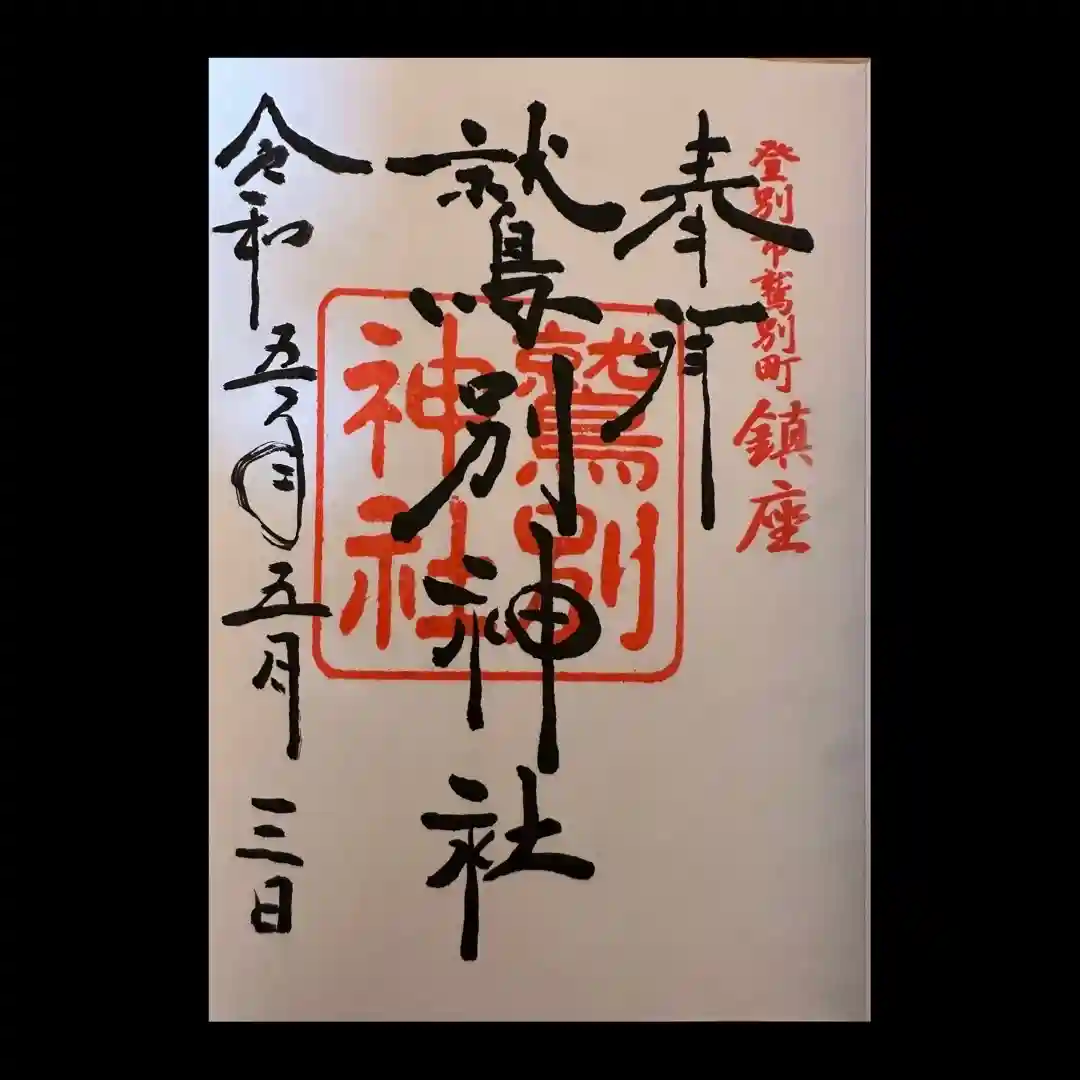 登別市鷲別町鎮座
奉拝
鷲別神社
鷲別
神社
令和五年五月三日